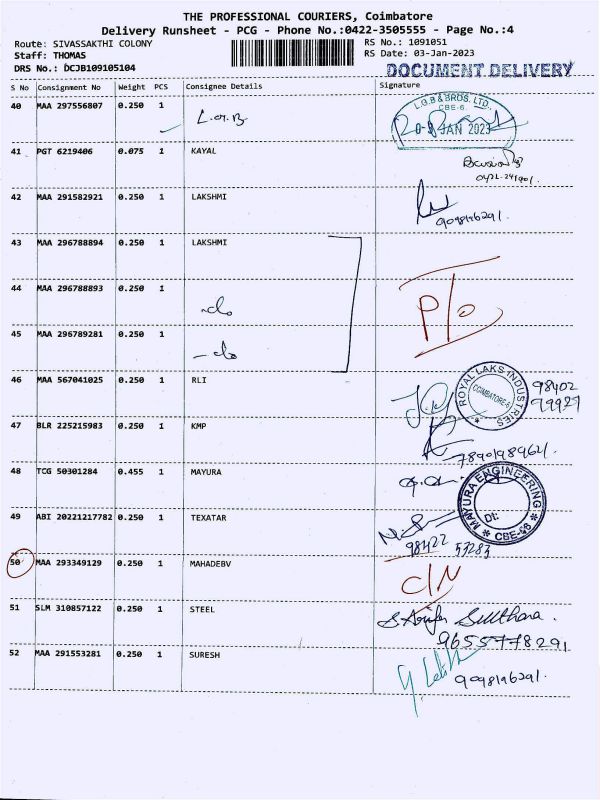 THE PROFESSIONAL COURIERS, Coimbatore
Delivery Runsheet - PCG - Phone No.:0422-3505555 - Page No.:4
Route: SIVASSAKTHI COLONY
RS No.: 1091051
Staff: THOMAS
RS Date: 03-Jan-2023
DRS No.: DCJB109105104
DOCUMENT DELIVERY
S No Consignment No Weight PCS Consignee Details Signature
40 MAA 297556807 0.250 1 L.G.B
L.G.B & BROS. LTD.,
CBE-6.
JAN 2023
41 PGT 6219406 0.075 1 KAYAL
42 MAA 291582921 0.250 1 LAKSHMI
9098196291.
43 MAA 296788894 0.250 1 LAKSHMI
44 MAA 296788893 0.250 1 -do
P/o
45 MAA 296789281 0.250 1 -do
46 MAA 567041025 0.250 1 RLI
ROYAL LAKS INDUSTRIES
COIMBATORE-6
98402
79927
47 BLR 225215983 0.250 1 KMP
48 TCG 50301284 0.455 1 MAYURA
MAYURA ENGINEERING
Dt:
CBE-66
49 ABI 20221217782 0.250 1 TEXATAR
98422 53283
50 MAA 293349129 0.250 1 MAHADEBV
C/N
51 SLM 310857122 0.250 1 STEEL
9655778291
52 MAA 291553281 0.250 1 SURESH
9098196291.